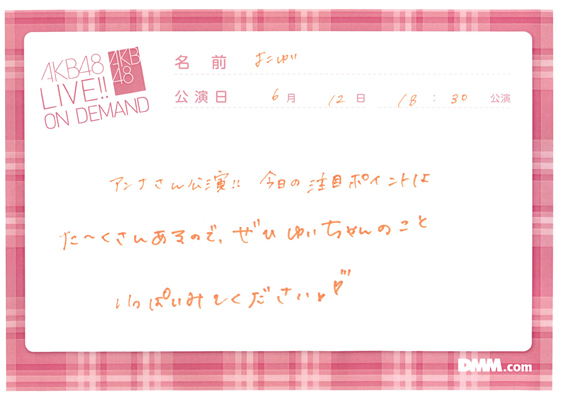 AKB48
LIVE!!
ON DEMAND
AKB
48
名前 よこゆい
公演日 6月 12日 18:30 公演
アンナさん公演!! 今日の注目ポイントは
た〜くさんあるので、ぜひゆいちゃんのこと
いっぱいみてください
DMM.com